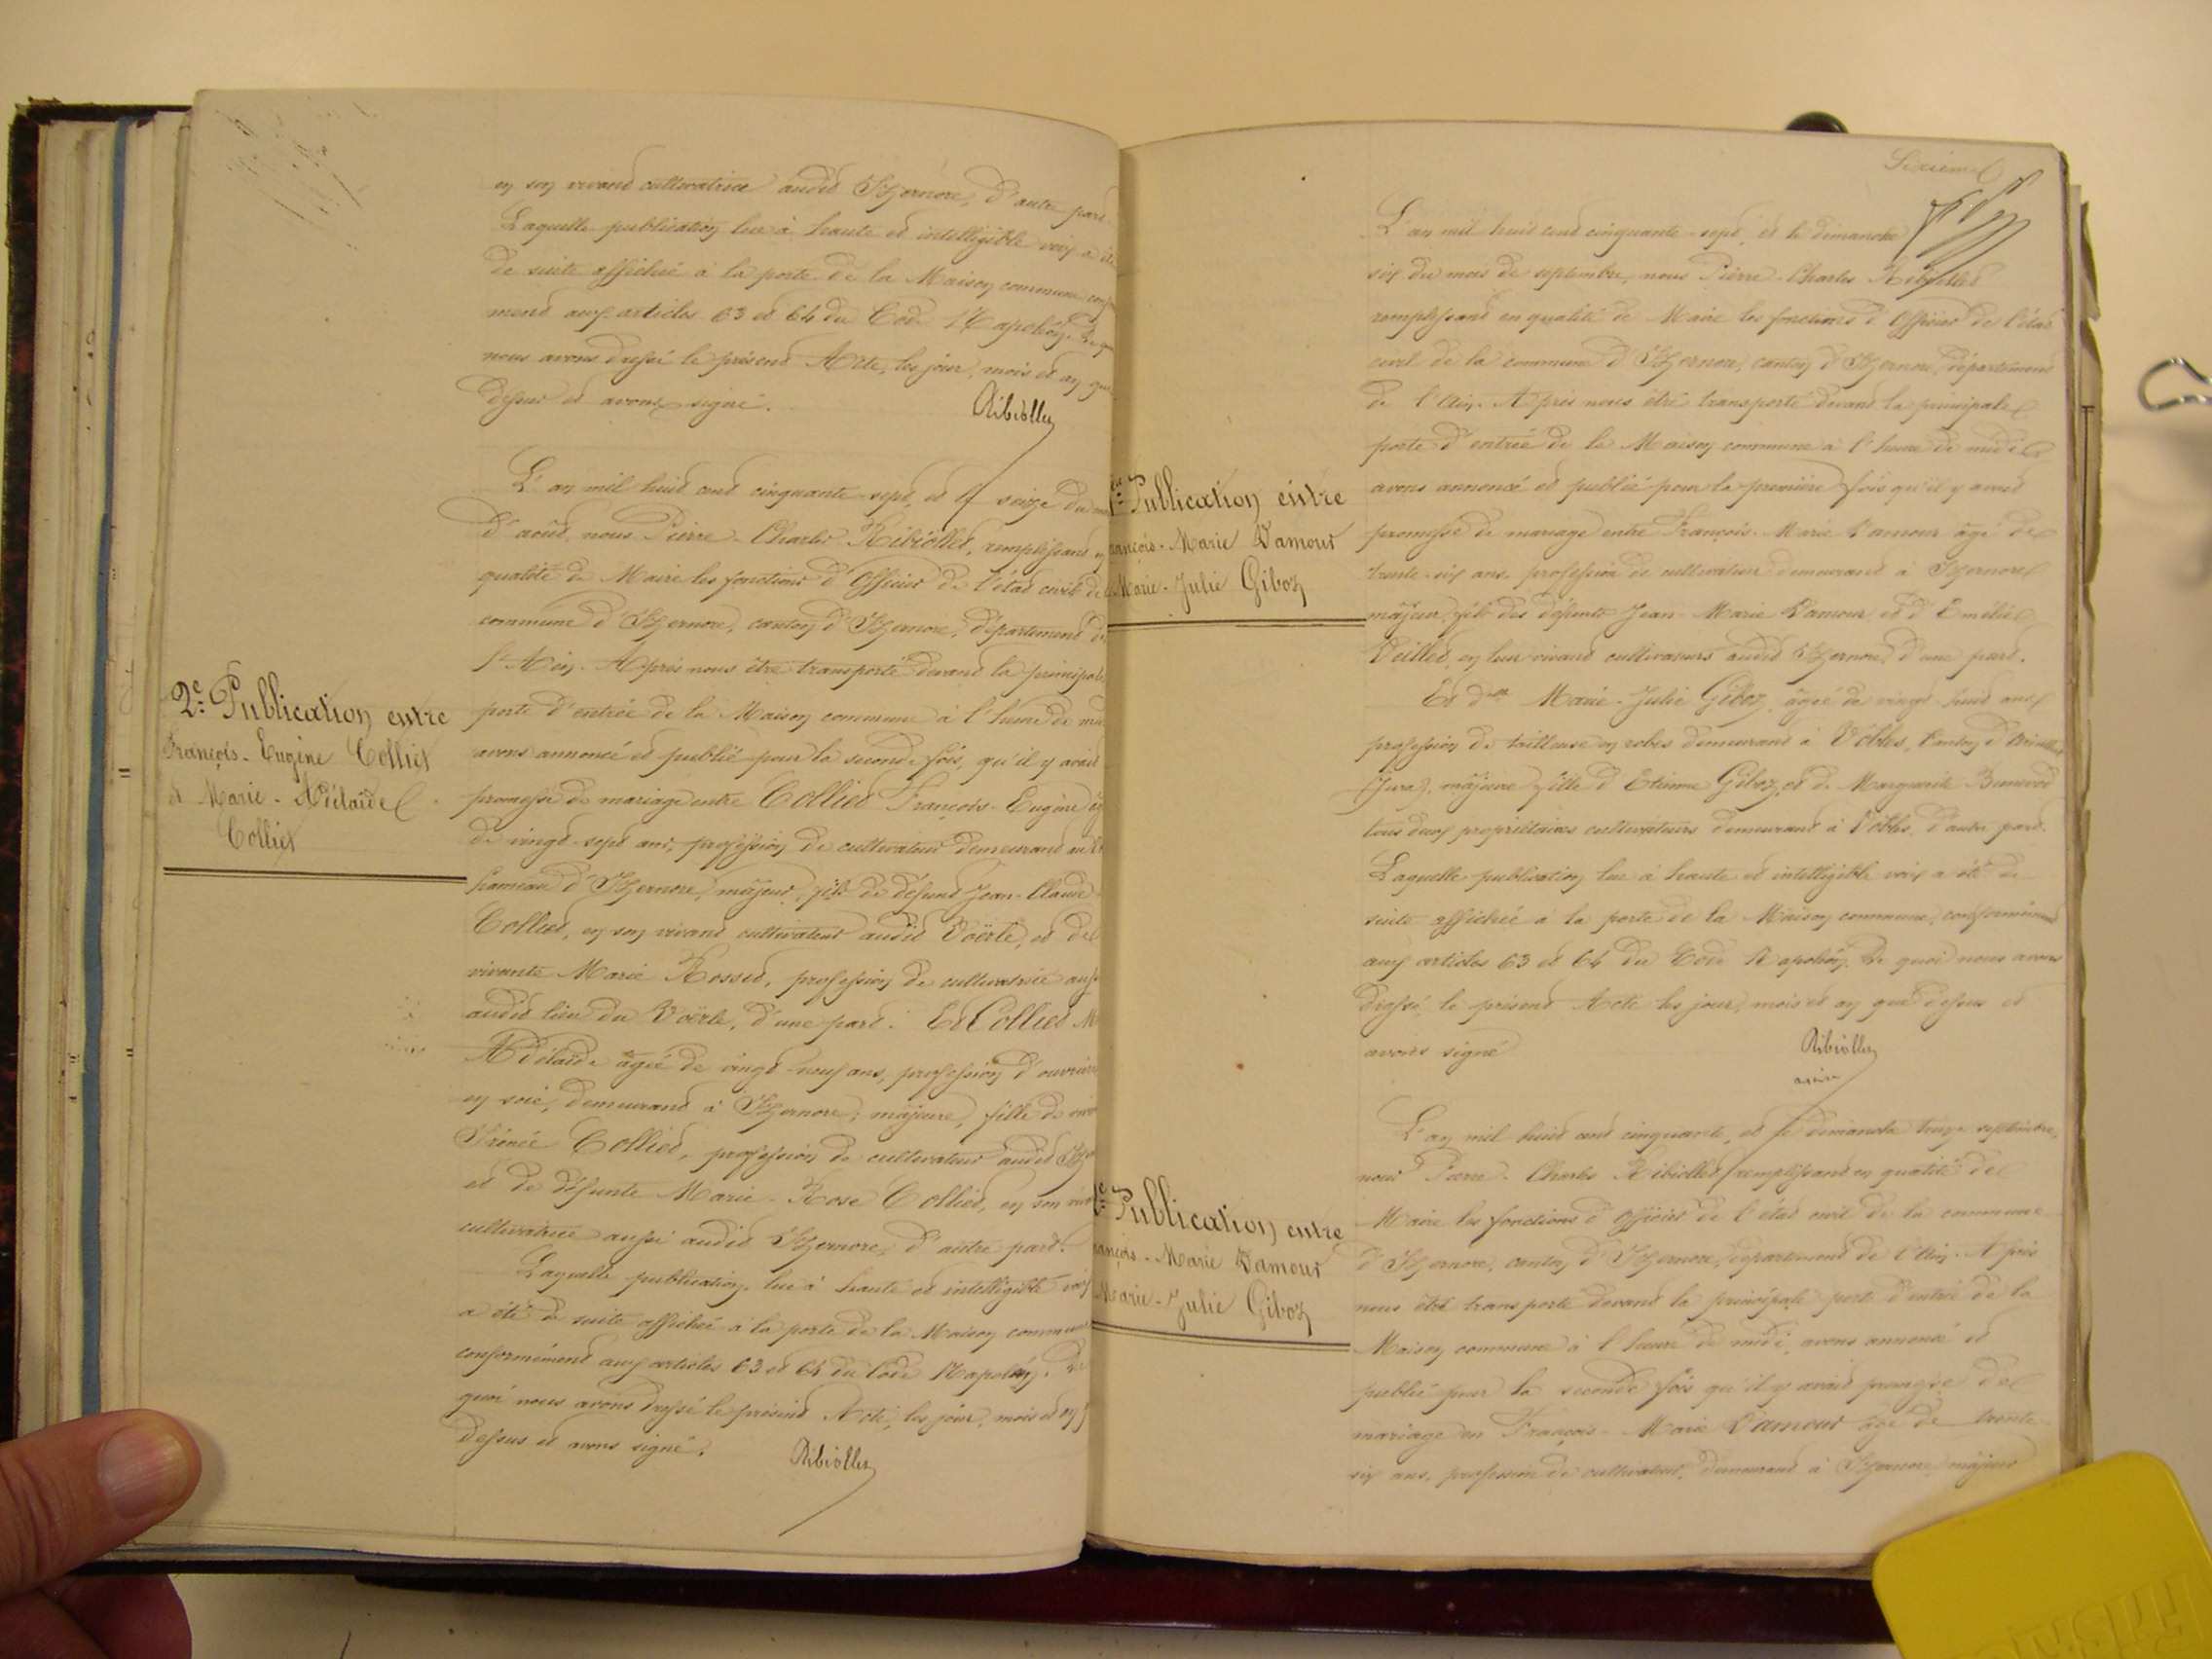 en son vivant cultivatrice audit Izernore, d'autre part.
Laquelle publication lue à haute et intelligible voix a été
de suite affichée à la porte de la Maison commune conf
mend aux articles 63 et 64 du Code Napoléon. De q
nous avons dressé le présent Acte, les jour, mois et an que
dessus et avons signé.
Ribiollet
2e. Publication entre
François-Eugène Colliet
et Marie-Adélaïde
Colliet
L'an mil huit cent cinquante-sept, et le seize du
d'août, nous Pierre-Charles Ribiollet, remplissant en
qualité de Maire les fonctions d'Officier de l'état civil de
commune d'Izernore, canton d'Izernore, département de
l'Ain. Après nous être transporté devant la principale
porte d'entrée de la Maison commune à l'heure de mi
avons annoncé et publié pour la seconde fois, qu'il y avait
promesse de mariage entre Colliet François-Eugène âg
de vingt-sept ans, profession de cultivateur demeurant au
hameau d'Izernore, majeur, fils de défunt Jean-Claude
Colliet, en son vivant cultivateur audit Voërle, et de
vivante Marie Rosset, profession de cultivatrice aussi
audit lieu du Voërle, d'une part. Et Colliet M
Adélaïde âgée de vingt-neuf ans, profession d'ouvrière
en soie, demeurant à Izernore, majeure, fille de viv
Irénée Colliet, profession de cultivateur audit Iz
et de défunte Marie-Rose Colliet, en son viv
cultivatrice aussi audit Izernore, d'autre part.
Laquelle publication, lue à haute et intelligible voix
a été de suite affichée à la porte de la Maison commune
conformément aux articles 63 et 64 du Code Napoléon. De
quoi nous avons dressé le présent Acte, les jour, mois et an
dessus et avons signé.
Ribiollet
Sixième
1ère Publication entre
François-Marie Damour
Marie-Julie Giboz
L'an mil huit cent cinquante-sept, et le dimanche
six du mois de septembre, nous Pierre-Charles Ribiollet
remplissant en qualité de Maire les fonctions d'Officier de l'état
civil de la commune d'Izernore, canton d'Izernore, département
de l'Ain. Après nous être transporté devant la principale
porte d'entrée de la Maison commune à l'heure de midi
avons annoncé et publié pour la première fois qu'il y avait
promesse de mariage entre François-Marie Damour âgé de
trente-six ans, profession de cultivateur demeurant à Izernore
majeur, fils des défunts Jean-Marie Damour et d'Emélie
Veillet, en leur vivant cultivateurs audit Izernore, d'une part.
Et dlle Marie-Julie Giboz, âgée de vingt-huit ans
profession de tailleuse en robes demeurant à Vobles, Canton d'
(Jura), majeure fille d'Etienne Giboz, et de Marguerite
tous deux propriétaires cultivateurs demeurant à Vobles, d'autre part.
Laquelle publication lue à haute et intelligible voix a été de
suite affichée à la porte de la Maison commune, conformément
aux articles 63 et 64 du Code Napoléon. De quoi nous avons
dressé le présent Acte les jour, mois et an que dessus et
avons signé
Ribiollet
maire
2e. Publication entre
François-Marie Damour
Marie-Julie Giboz
L'an mil huit cent cinquante, et le dimanche treize septembre,
nous Pierre-Charles Ribiollet remplissant en qualité de
Maire les fonctions d'Officier de l'état civil de la commune
d'Izernore, canton d'Izernore, département de l'Ain. Après
nous être transporté devant la principale porte d'entrée de la
Maison commune à l'heure de midi, avons annoncé et
publié pour la seconde fois qu'il y avait promesse de
mariage en François-Marie Damour âgé de trente
six ans, profession de cultivateur, demeurant à Izernore, majeur